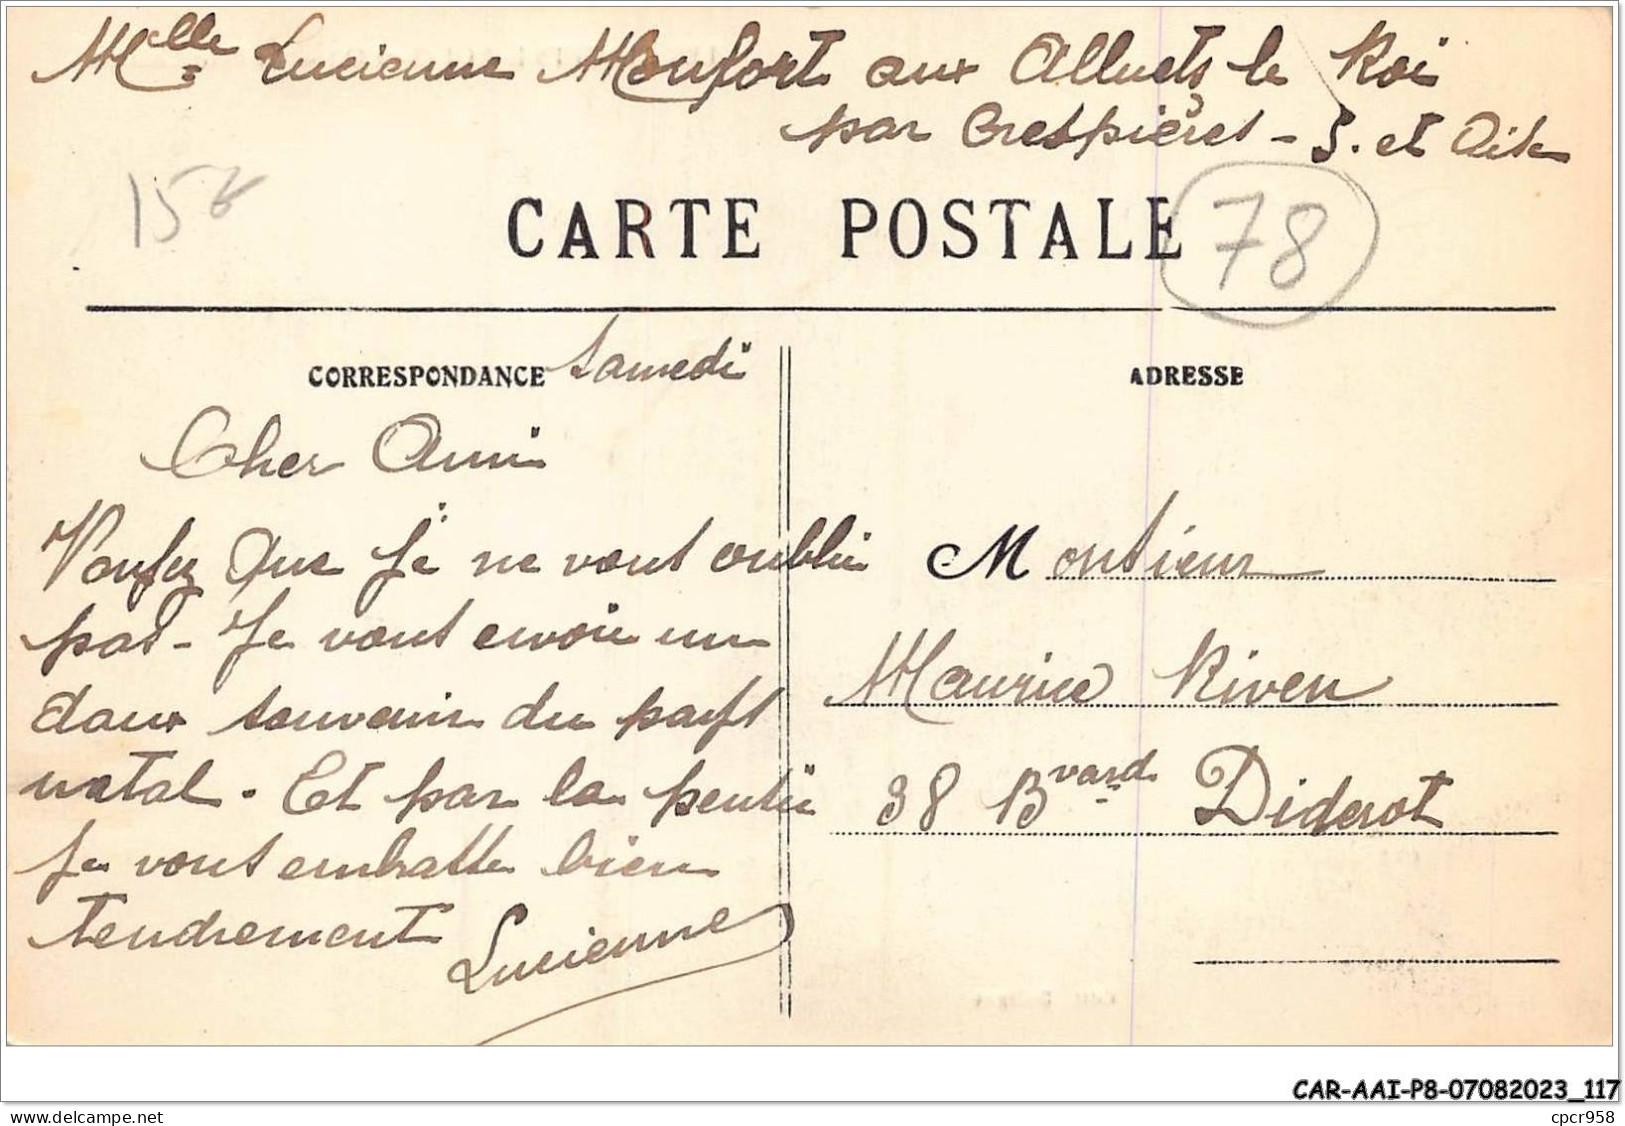 Mlle Lucienne Monfort aux Alluets le Roi
par Crespières - S. et Oise
15€
78
CARTE POSTALE
CORRESPONDANCE Samedi
ADRESSE
Cher Ami
Voyez que je ne vous oublie
pas - Je vous envoie un
doux souvenir du pays
natal. Et par la pensée
Je vous embrasse bien
tendrement
Lucienne
Monsieur
Maurice Riven
38 Bvard Diderot
CAR-AAI-P8-07082023_117
delcampe.net
cpcr958